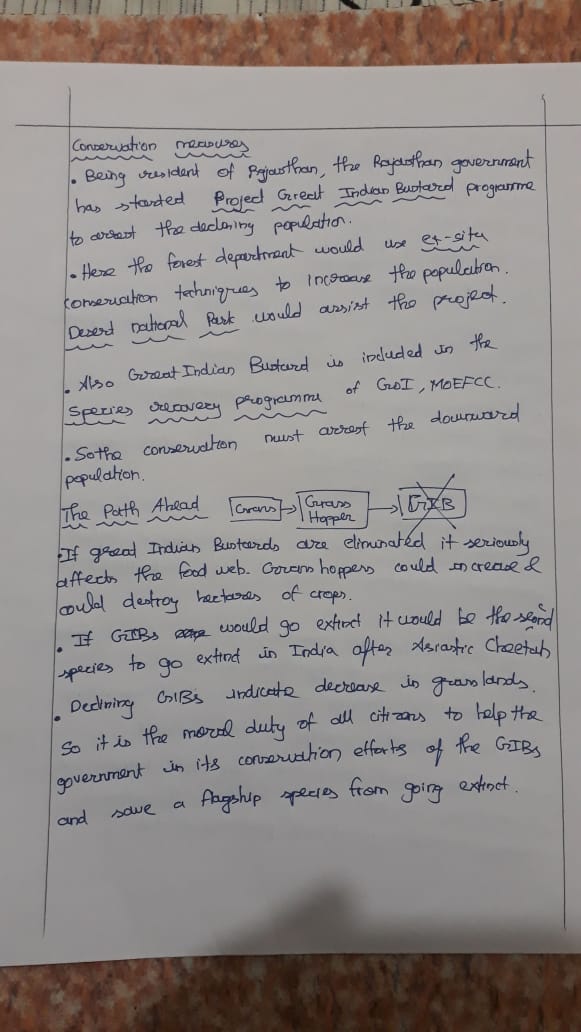 Conservation measures
• Being resident of Rajasthan, the Rajasthan government
has started Project Great Indian Bustard programme
to arrest the declining population.
• Here the forest department would use ex-situ
conservation techniques to increase the population.
Desert national Park would assist the project.
• Also Great Indian Bustard is included in the
Species recovery programme of GoI, MOEFCC.
• So the conservation must arrest the downward
population.
The Path Ahead Grass → Grass Hopper → GIB
• If great Indian Bustards are eliminated it seriously
affects the food web. Grass hoppers could increase &
could destroy hectares of crops.
• If GIBs would go extinct it would be the second
species to go extinct in India after Asiastic Cheetah
• Declining GIBs indicate decrease in grass lands.
So it is the moral duty of all citizens to help the
government in its conservation efforts of the GIBs
and save a flagship species from going extinct.